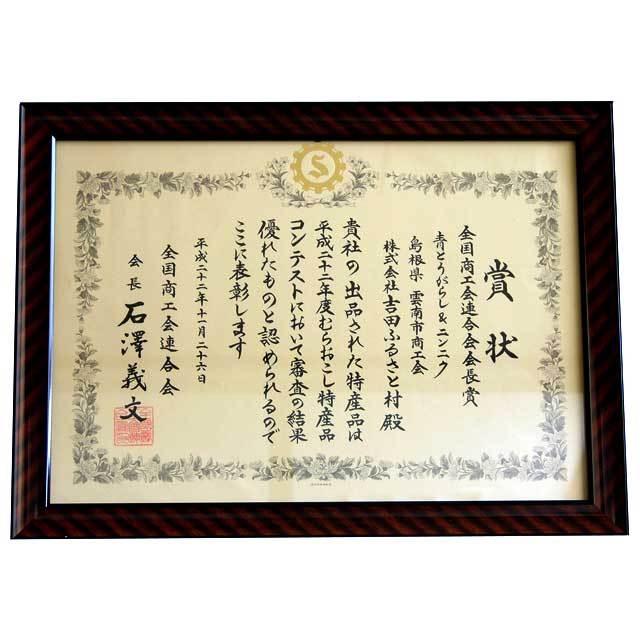 賞状
全国商工会連合会会長賞
青とうがらし&ニンニク
島根県 雲南市商工会
株式会社吉田ふるさと村 殿
貴社の出品された特産品は
平成二十二年度むらおこし特産品
コンテストにおいて審査の結果
優れたものと認められるので
ここに表彰します
平成二十二年十一月二十六日
全国商工会連合会
会長 石澤義文